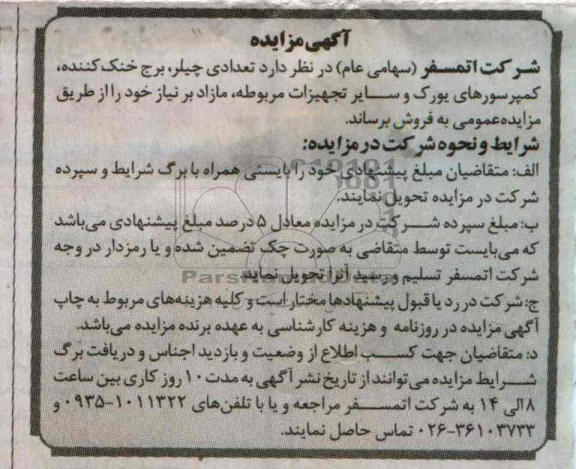 آگهی مزایده
شرکت اتمسفر (سهامی عام) در نظر دارد تعدادی چیلر، برج خنک کننده،
کمپرسورهای یورک و سایر تجهیزات مربوطه، مازاد بر نیاز خود را از طریق
مزایده عمومی به فروش برساند.
شرایط و نحوه شرکت در مزایده:
الف: متقاضیان مبلغ پیشنهادی خود را بایستی همراه با برگ شرایط و سپرده
شرکت در مزایده تحویل نمایند.
ب: مبلغ سپرده شرکت در مزایده معادل ۵ درصد مبلغ پیشنهادی می‌باشد
که می‌بایست توسط متقاضی به صورت چک تضمین شده و یا رمزدار در وجه
شرکت اتمسفر تسلیم و رسید آنرا تحویل نماید
ParsNamadData
ج: شرکت در رد یا قبول پیشنهادها مختار است و کلیه هزینه‌های مربوط به چاپ
آگهی مزایده در روزنامه و هزینه کارشناسی به عهده برنده مزایده می‌باشد.
د: متقاضیان جهت کسب اطلاع از وضعیت و بازدید اجناس و دریافت برگ
شرایط مزایده می‌توانند از تاریخ نشر آگهی به مدت ۱۰ روز کاری بین ساعت
۸ الی ۱۴ به شرکت اتمسفر مراجعه و یا با تلفن‌های ۱۰۱۱۳۲۲-۰۹۳۵ و
۳۶۱۰۳۷۳۳-۰۲۶ تماس حاصل نمایند.